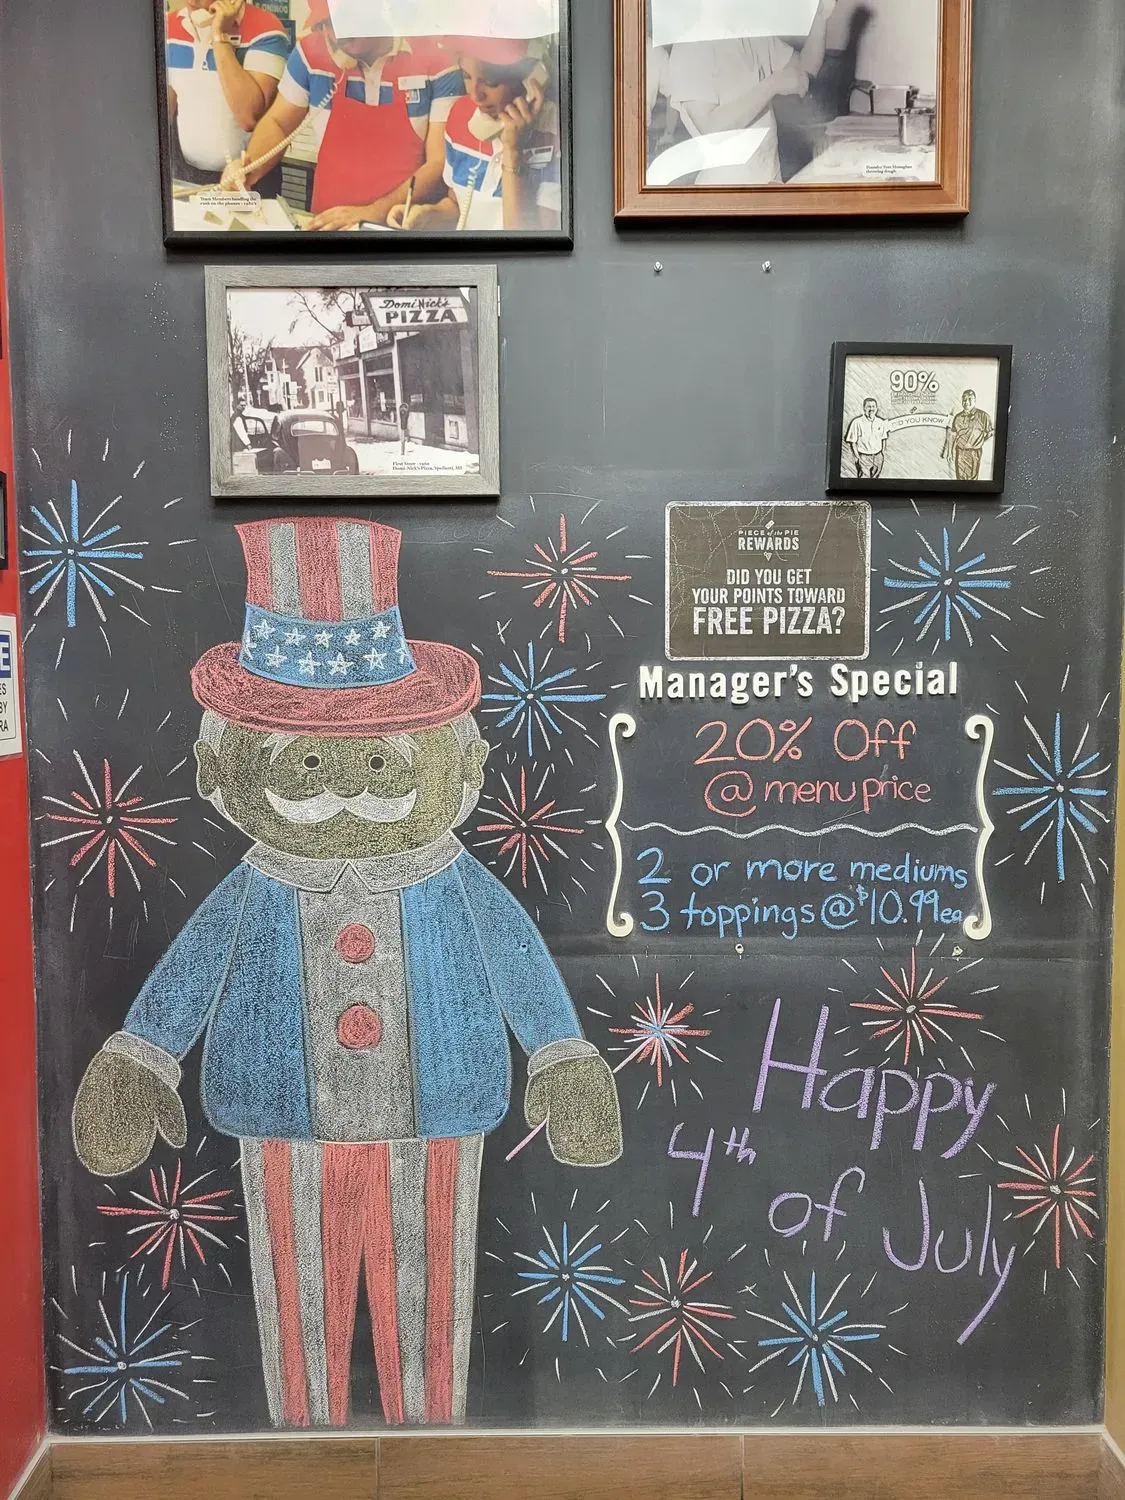 Team Members handling the
rush on the phones - 1980's
Founder Tom Monaghan
throwing dough.
Domi Nick's
PIZZA
First Store - 1960
Domi-Nick's Pizza, Ypsilanti, MI
90%
D YOU KNOW
PIECE of the PIE
REWARDS
DID YOU GET
YOUR POINTS TOWARD
FREE PIZZA?
Manager's Special
20% Off
@ menu price
2 or more mediums
3 toppings @ $10.99ea
Happy
4th
of July
E
ES
BY
RA